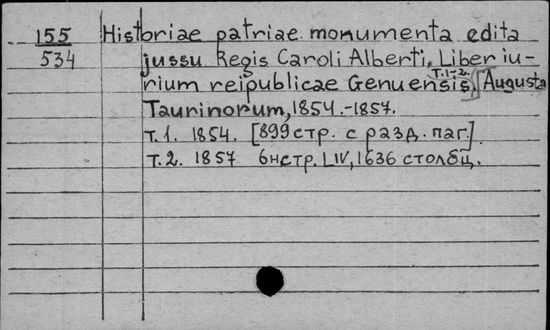 155 Historiae patriae monumenta edita
534 jussu Regis Caroli Alberti. Liber iu-
rium reipublicae Genuensis. Т.1-2. Augusta
Taurinorum, 1854.-1857.
т. 1. 1854. [899 стр. с разд. паг.]
т. 2. 1857 бнстр. LIV, 1636 столбц.